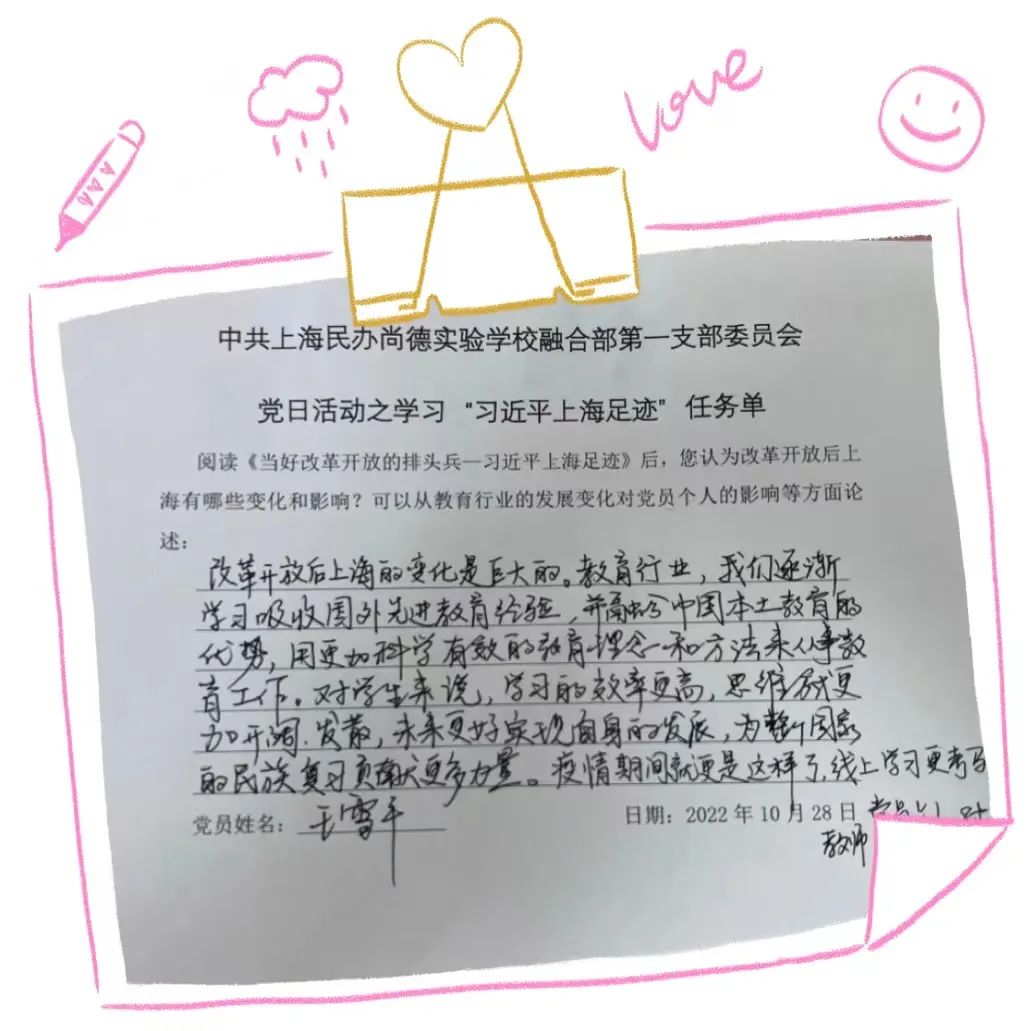 Love
中共上海民办尚德实验学校融合部第一支部委员会
党日活动之学习“习近平上海足迹”任务单
阅读《当好改革开放的排头兵—习近平上海足迹》后，您认为改革开放后上
海有哪些变化和影响？可以从教育行业的发展变化对党员个人的影响等方面论
述：
改革开放后上海的变化是巨大的。教育行业，我们逐渐
学习吸收国外先进教育经验，并融合中国本土教育的
优势，用更加科学有效的教育理念和方法来从事教
育工作。对学生来说，学习的效率更高，思维就更
加开阔、发散，未来更好实现自身的发展，为整个国家
的民族复习贡献更多力量。疫情期间就更是这样了，线上学习更考写
党员姓名：王雪平
日期：2022年10月28日
教师